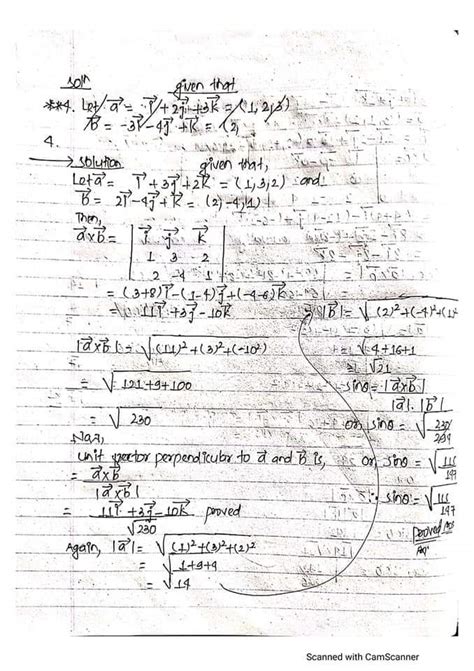 soln given that
**4. Let a⃗ = i⃗ + 2j⃗ + 3k⃗ = (1, 2, 3)
b⃗ = -3i⃗ - 4j⃗ + k⃗ = (2,
4.
→ solution given that,
Let a⃗ = i⃗ + 3j⃗ + 2k⃗ = (1, 3, 2) and
b⃗ = 2i⃗ - 4j⃗ + k⃗ = (2, -4, 1)
Then,
a⃗ x b⃗ = | i⃗ j⃗ k⃗ |
1 3 2
2 -4 1
= (3+8)i⃗ - (1-4)j⃗ + (-4-6)k⃗
= 11i⃗ + 3j⃗ - 10k⃗
|a⃗ x b⃗| = √(11)² + (3)² + (-10²)
= √121 + 9 + 100
= √230
Now,
unit vector perpendicular to a⃗ and b⃗ is,
= a⃗ x b⃗
|a⃗ x b⃗|
= 11i⃗ + 3j⃗ - 10k⃗ proved
√230
Again, |a⃗| = √(1)² + (3)² + (2)²
= √1 + 9 + 4
= √14
= |b⃗| = √(2)² + (-4)² + (1
= √4 + 16 + 1
= √21
sinθ = |a⃗ x b⃗|
|a⃗|. |b⃗|
or, sinθ = √230
294
or, sinθ = √115
147
∴ sinθ = √115
147
proved
Scanned with CamScanner